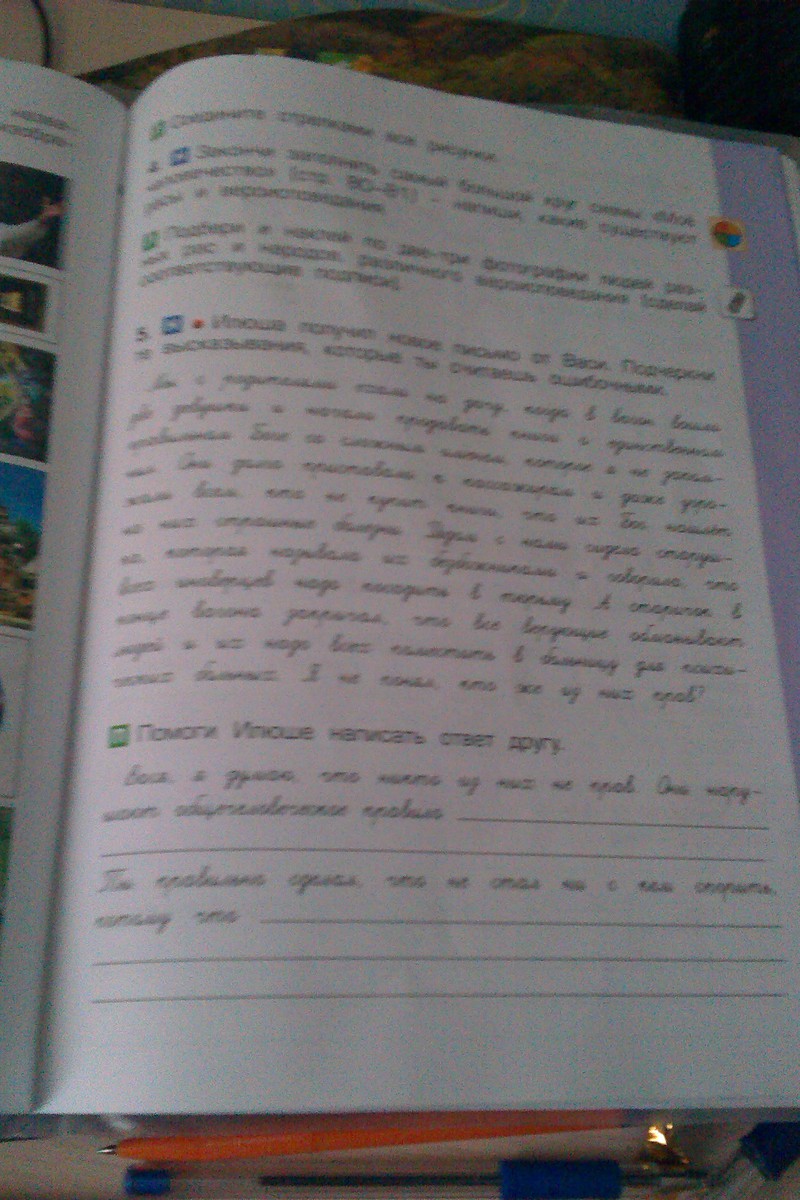 П Соедините стрелками все рисунки.
4. Закончи заполнять самый большой круг схемы «Моё
человечество» (стр. 80–81) – напиши, какие существуют
расы и вероисповедания.
П Подбери и наклей по две-три фотографии людей раз-
ных рас и народов, различного вероисповедания (сделай
соответствующие подписи).
5. Илюша получил новое письмо от Васи. Подчеркни
те высказывания, которые ты считаешь ошибочными.
Мы с родителями ехали на дачу, когда в вагон вошли
две девушки и начали продавать книги о единственном
правильном Боге со сложным именем, которое я не запом-
нил. Они долго приставали к пассажирам и даже угро-
жали всем, кто не купит книги, что их Бог нашлёт
на них страшные болезни. Рядом с нами сидела старуш-
ка, которая называла их безбожниками и говорила, что
всех иноверцев надо посадить в тюрьму. А старичок в
конце вагона закричал, что все верующие обманывают
людей и их надо всех поместить в больницу для психи-
ческих больных. Я не понял, кто же из них прав?
П Помоги Илюше написать ответ другу.
Вася, я думаю, что никто из них не прав. Они нару-
шают общечеловеческое правило
Ты правильно сделал, что не стал ни с кем спорить,
потому что